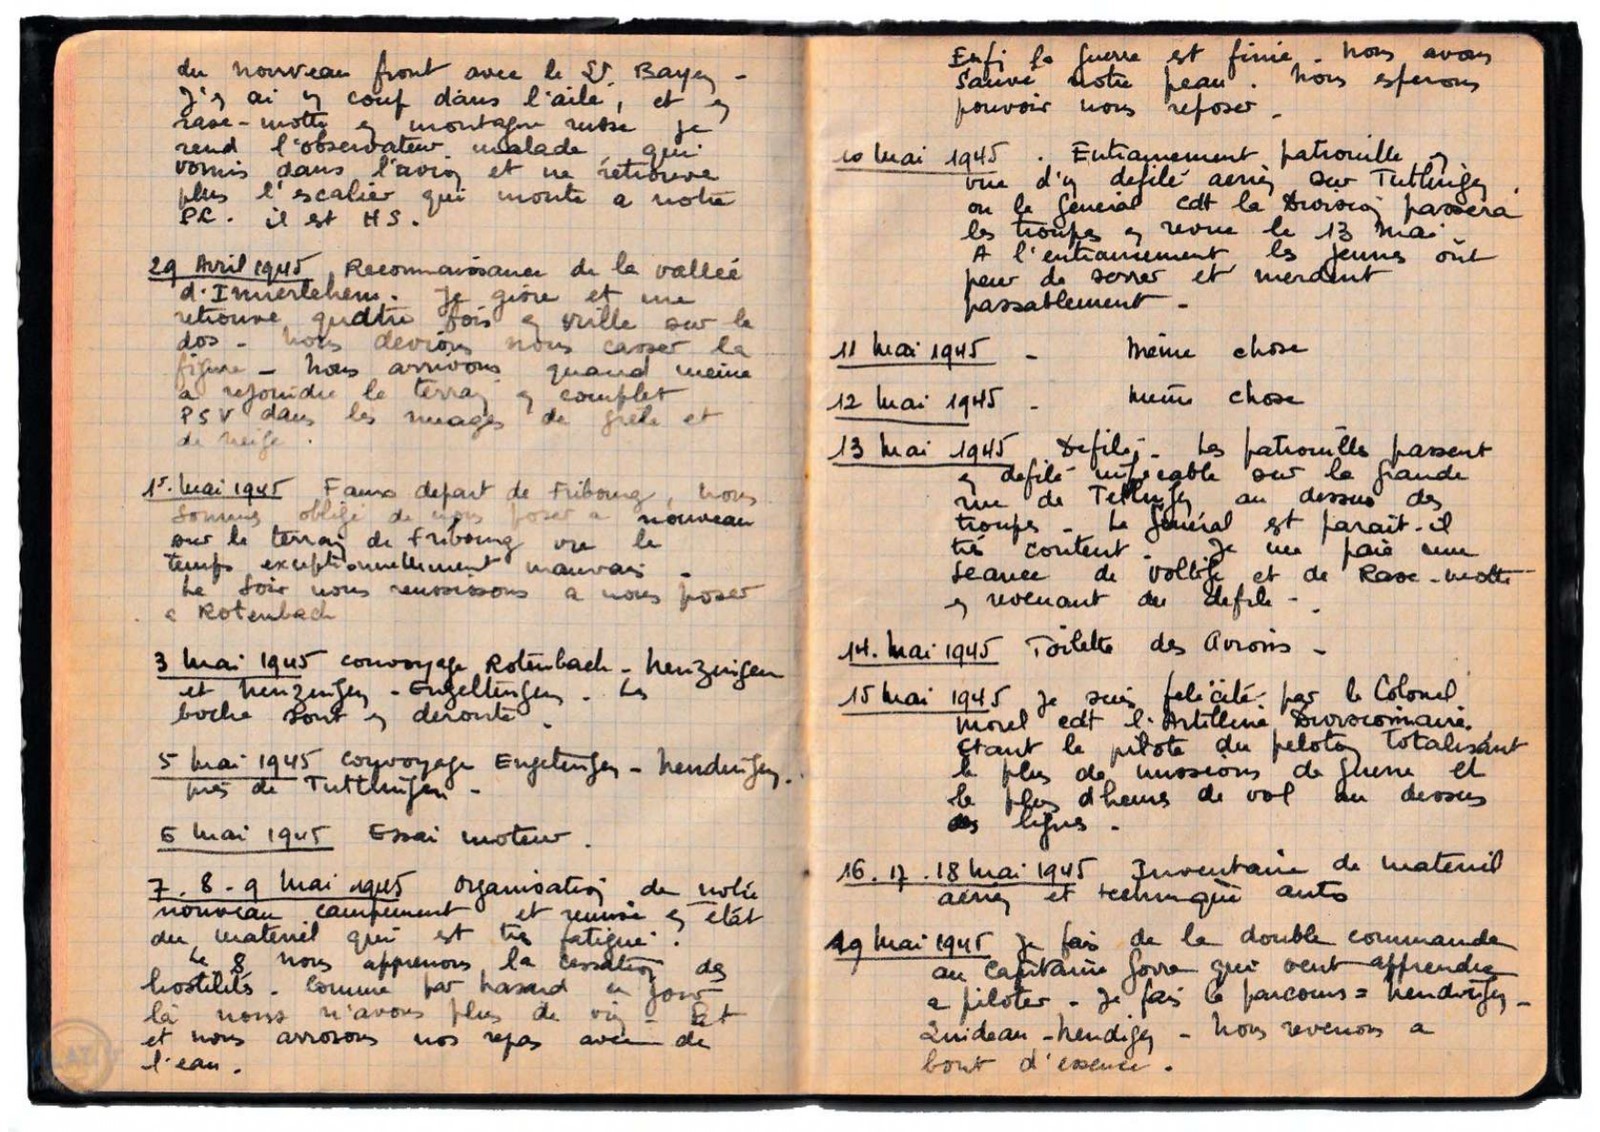 du nouveau front avec le Lt Bayen -
J'y ai un coup dans l'aile, et en
rase-motte en montagne russe je
rend l'observateur malade qui
vomis dans l'avion et ne retrouve
plus l'escalier qui monte a notre
PC. il est HS.
29 Avril 1945 Reconnaissance de la vallée
d'Immertehem. Je givre et me
retrouve quatre fois en vrille sur le
dos - nous devions nous casser la
figure - Nous arrivons quand meme
a rejoindre le terrain en complet
PSV dans les nuages de grele et
de neige.
1er Mai 1945 Faux depart de Fribourg, nous
sommes obligé de nous poser a nouveau
sur le terrain de Fribourg vue le
temps exceptionnellement mauvais -
Le soir nous reussissons a nous poser
a Rotenbach
3 Mai 1945 convoyage Rotenbach - Nenzingen
et Nenzingen - Engeltingen. Les
boche sont en deroute.
5 Mai 1945 convoyage Engeltingen - Nendingen.
près de Tuttlingen -
6 Mai 1945 Essai moteur.
7. 8 - 9 Mai 1945 Organisation de notre
nouveau campement et remise en état
du materiel qui est très fatigué.
Le 8 nous apprenons la cessation des
hostilités. Comme par hasard ce jour
là nous n'avons plus de vin - Et
et nous arrosons nos repas avec de
l'eau.
Enfin la guerre est finie. Nous avons
sauvé notre peau. Nous esperons
pouvoir nous reposer.
10 Mai 1945. Entrainement patrouille en
vue d'un defilé aerien sur Tuttlingen.
ou le General cdt la Division passera
les troupes en revue le 13 Mai -
A l'entrainement les jeunes ont
peur de serrer et merdent
passablement -
11 Mai 1945 - Même chose
12 Mai 1945 - Même chose
13 Mai 1945 Defilé - Les patrouilles passent
en defilé impecable sur la grande
rue de Tettlingen au dessus des
troupes - Le Général est parait-il
très content. Je me paie une
seance de voltige et de Rase-motte
en revenant du defile -.
14. Mai 1945 Toilette des Avions -
15 Mai 1945 Je suis felicité par le Colonel
Morel cdt l'Artillerie Divisionnaire.
Etant le pilote du peloton Totalisant
le plus de missions de guerre et
le plus d'heures de vol au dessus
des lignes.
16. 17. 18 Mai 1945 Inventaire de materiel
aerien et technique auto
19 Mai 1945 Je fais de la double commande
au Capitaine qui veut apprendre
a piloter - Je fais le parcours = Nendingen -
Lindeau - Nendigen - Nous revenons a
bout d'essence.